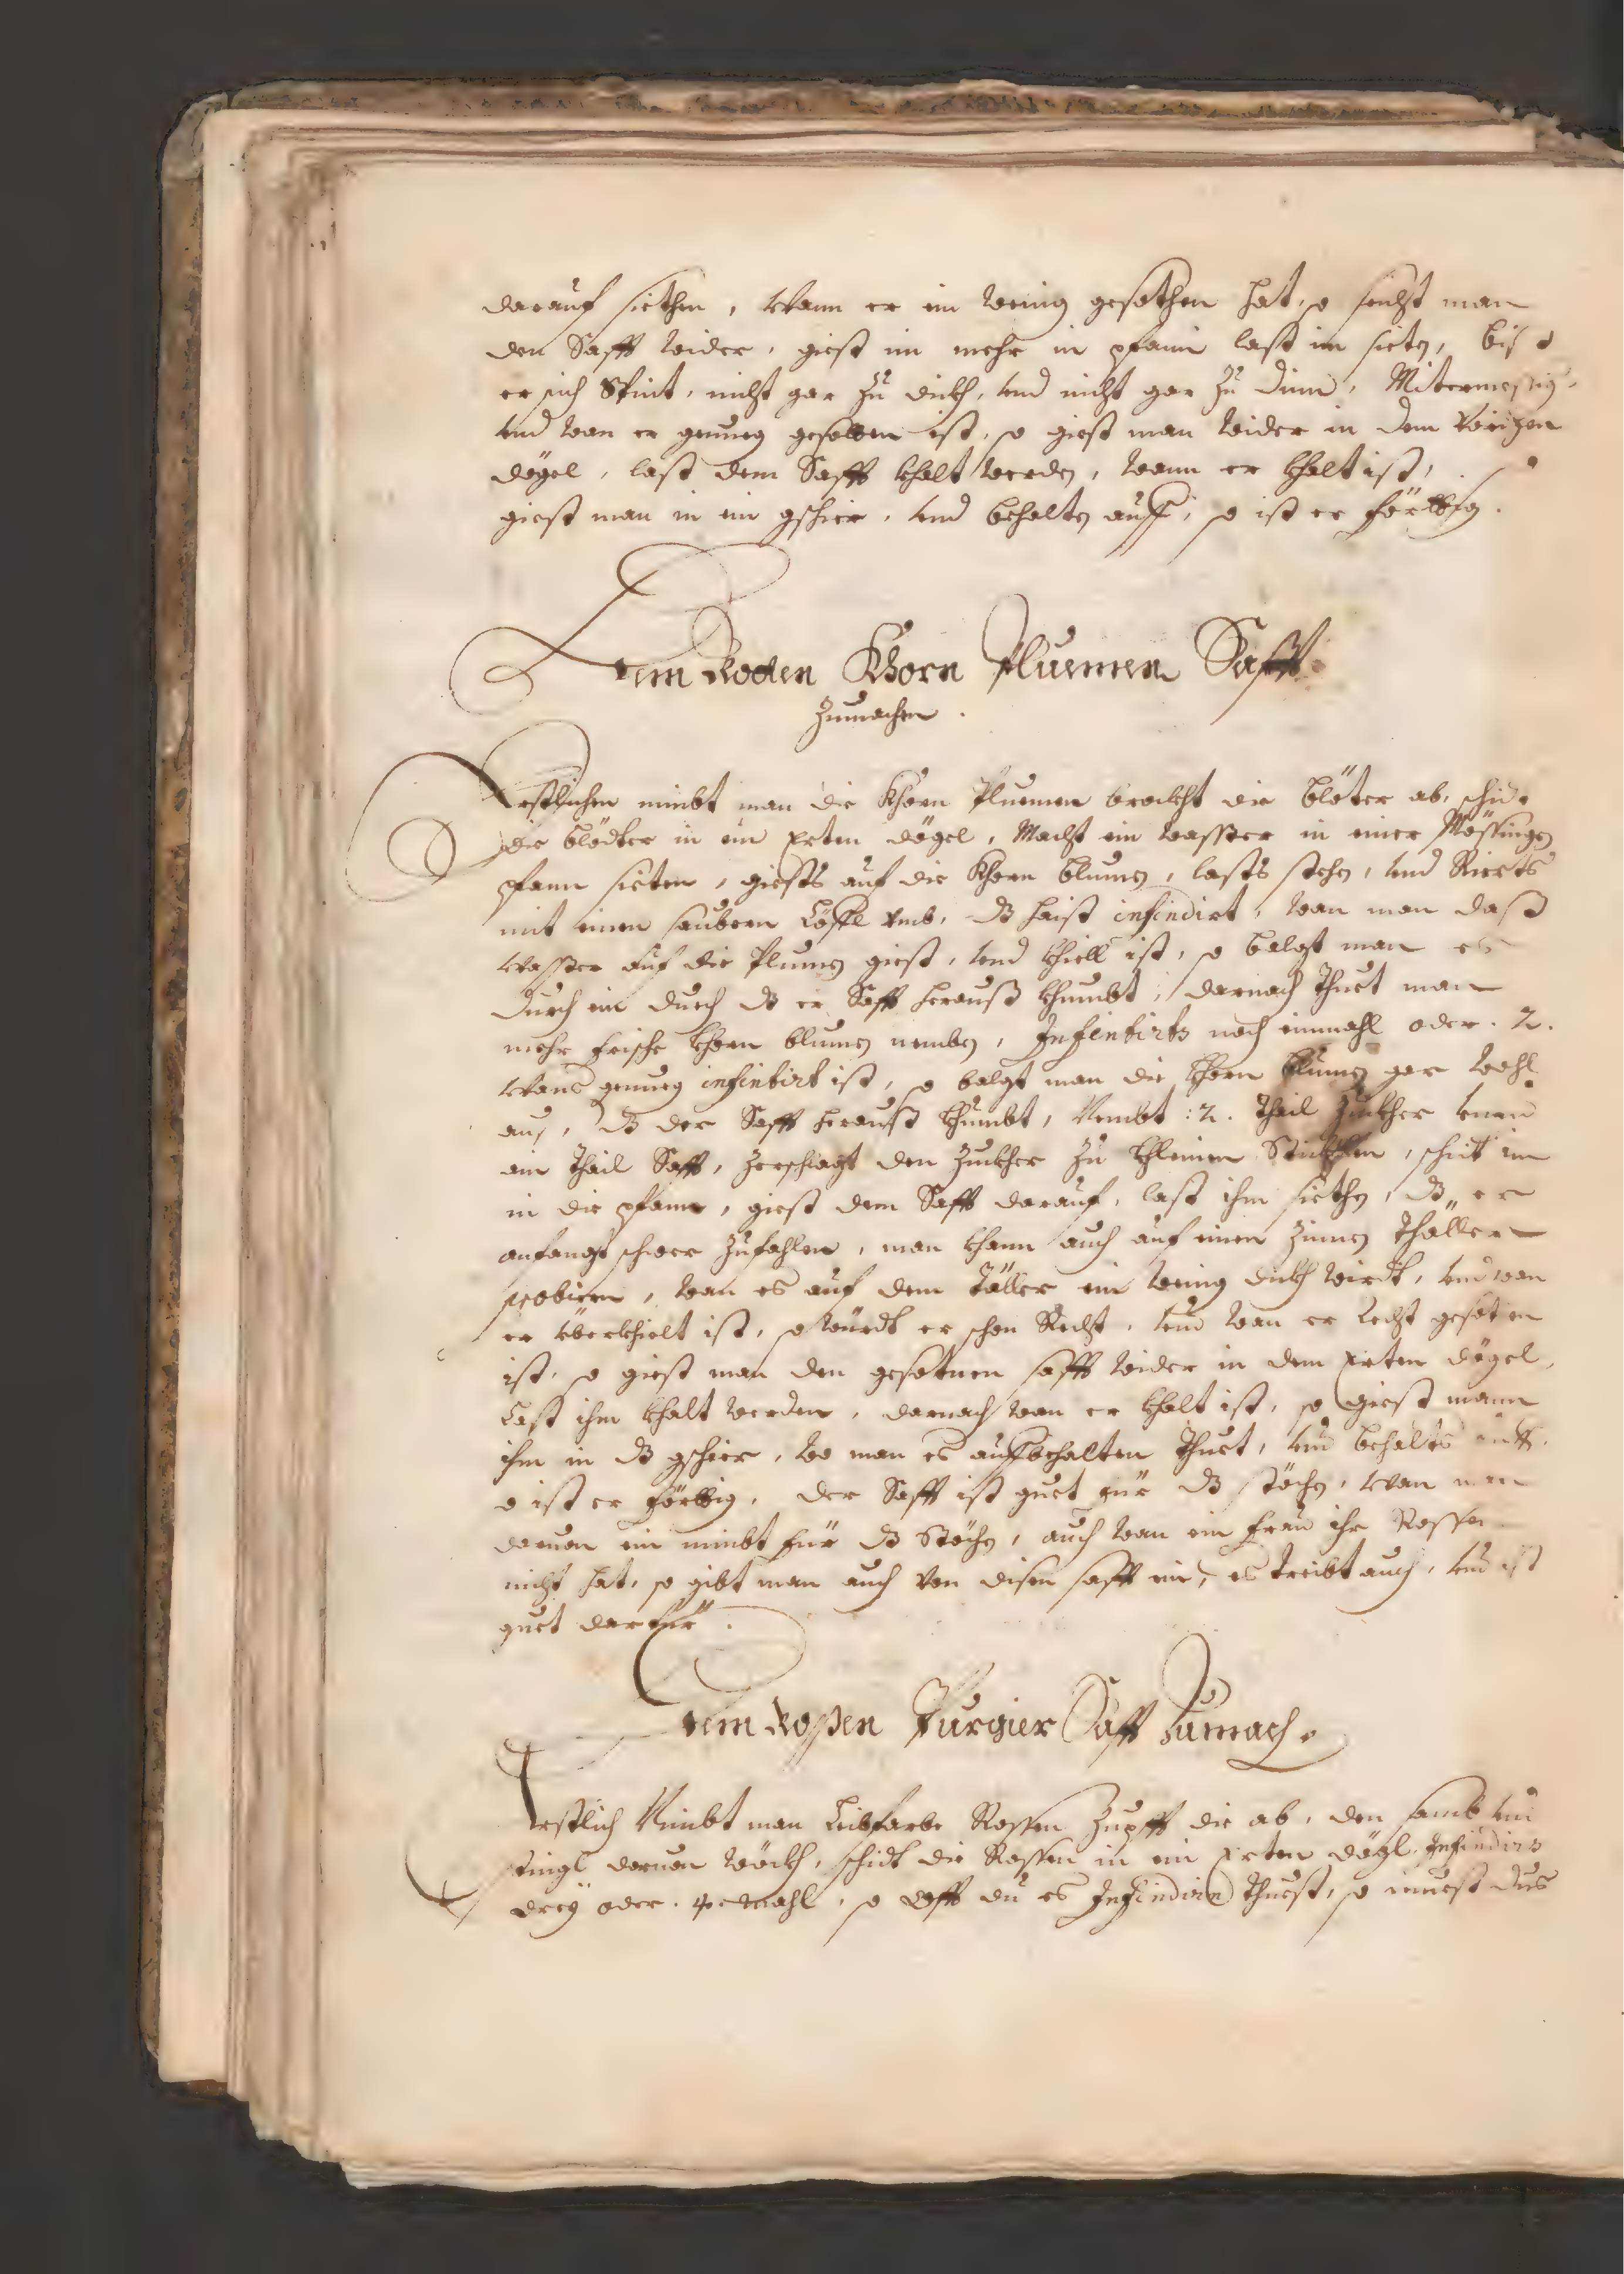 darauf siethen, Wann er ein wenig gesothen hat, so seichst man
den Safft wider, giest im mehr in pfann last im sieten, biß
er sich Spint, nicht gar zu dickh, und nicht gar zu dinn, Mitermessig,
und wan er genueg gesotten ist, so giest man wider in dem Vorigen
dögel, last dem Safft khalt werden, wann er khalt ist,
giest man in ein gschier, und behalts auff, so ist er förttig.
Dem Rotten Khorn Pluemen Safft
Zumachen.
Erstlichen nimbt man die Khorn Pluemen brockht die blöter ab, schit
die blödter in ein Erten dögel, Macht ein wasser in einer Mössingen
pfann sieten, giests auf die Khorn blumen, lasts stehen, und Rierts
mit einen saubern Löffl umb, dß haist infindirt, wan man daß
wasser auf die Plumen giest, und khiell ist, so balgt man es
durch ein duech dß der Safft herauß khumbt, darnach thuet man
mehr frische khorn blumen nemben, Infintirts noch einmahl oder .2.
Wans genueg infintirt ist, so balgt man die khorn blumen gar wohl
auß, dß der Safft herauß khumbt, Nembt :2. theil Zuckher unnd
ein theil Safft, zerschlagt den Zuckher zu khleinen Stückhlen, schit im
in die pfann, giest dem Safft darauf, last ihm siethen, dß er
anfangt schwer zufahlen, man khann auch auf einen Zinnen thäller
probiern, wan es auf dem täller ein wenig dickh wirdt, und wan
er überkhielt ist, so würdt er schon Recht, und wan er recht gesoten
ist, so giest man den gesotnen safft wider in dem Erten dögel,
Last ihm khalt werden, darnach wan er khalt ist, so giest mann
ihm in dß gschier, wo man es auffbehalten thuet, und behalts auff,
so ist er förttig, der Safft ist guet für dß stöchen, wan man
daruon ein nimbt für dß Stöchen, auch wan ein frau ihr Rossen
nicht hat, so gibt man auch von disen safft ein, es treibt auch, und ist
guet darfür.
Dem Roßen Purgier Safft Zumach.
Erstlich Nimbt man Leibfarbe Rossen Zupfft die ab, den samb und
stingl daruon wöckh, schidt die Rossen in ein Erten dögl, Infindirs
drey oder .4. mahl, so offt du es Infindirn thuest, so muest dus